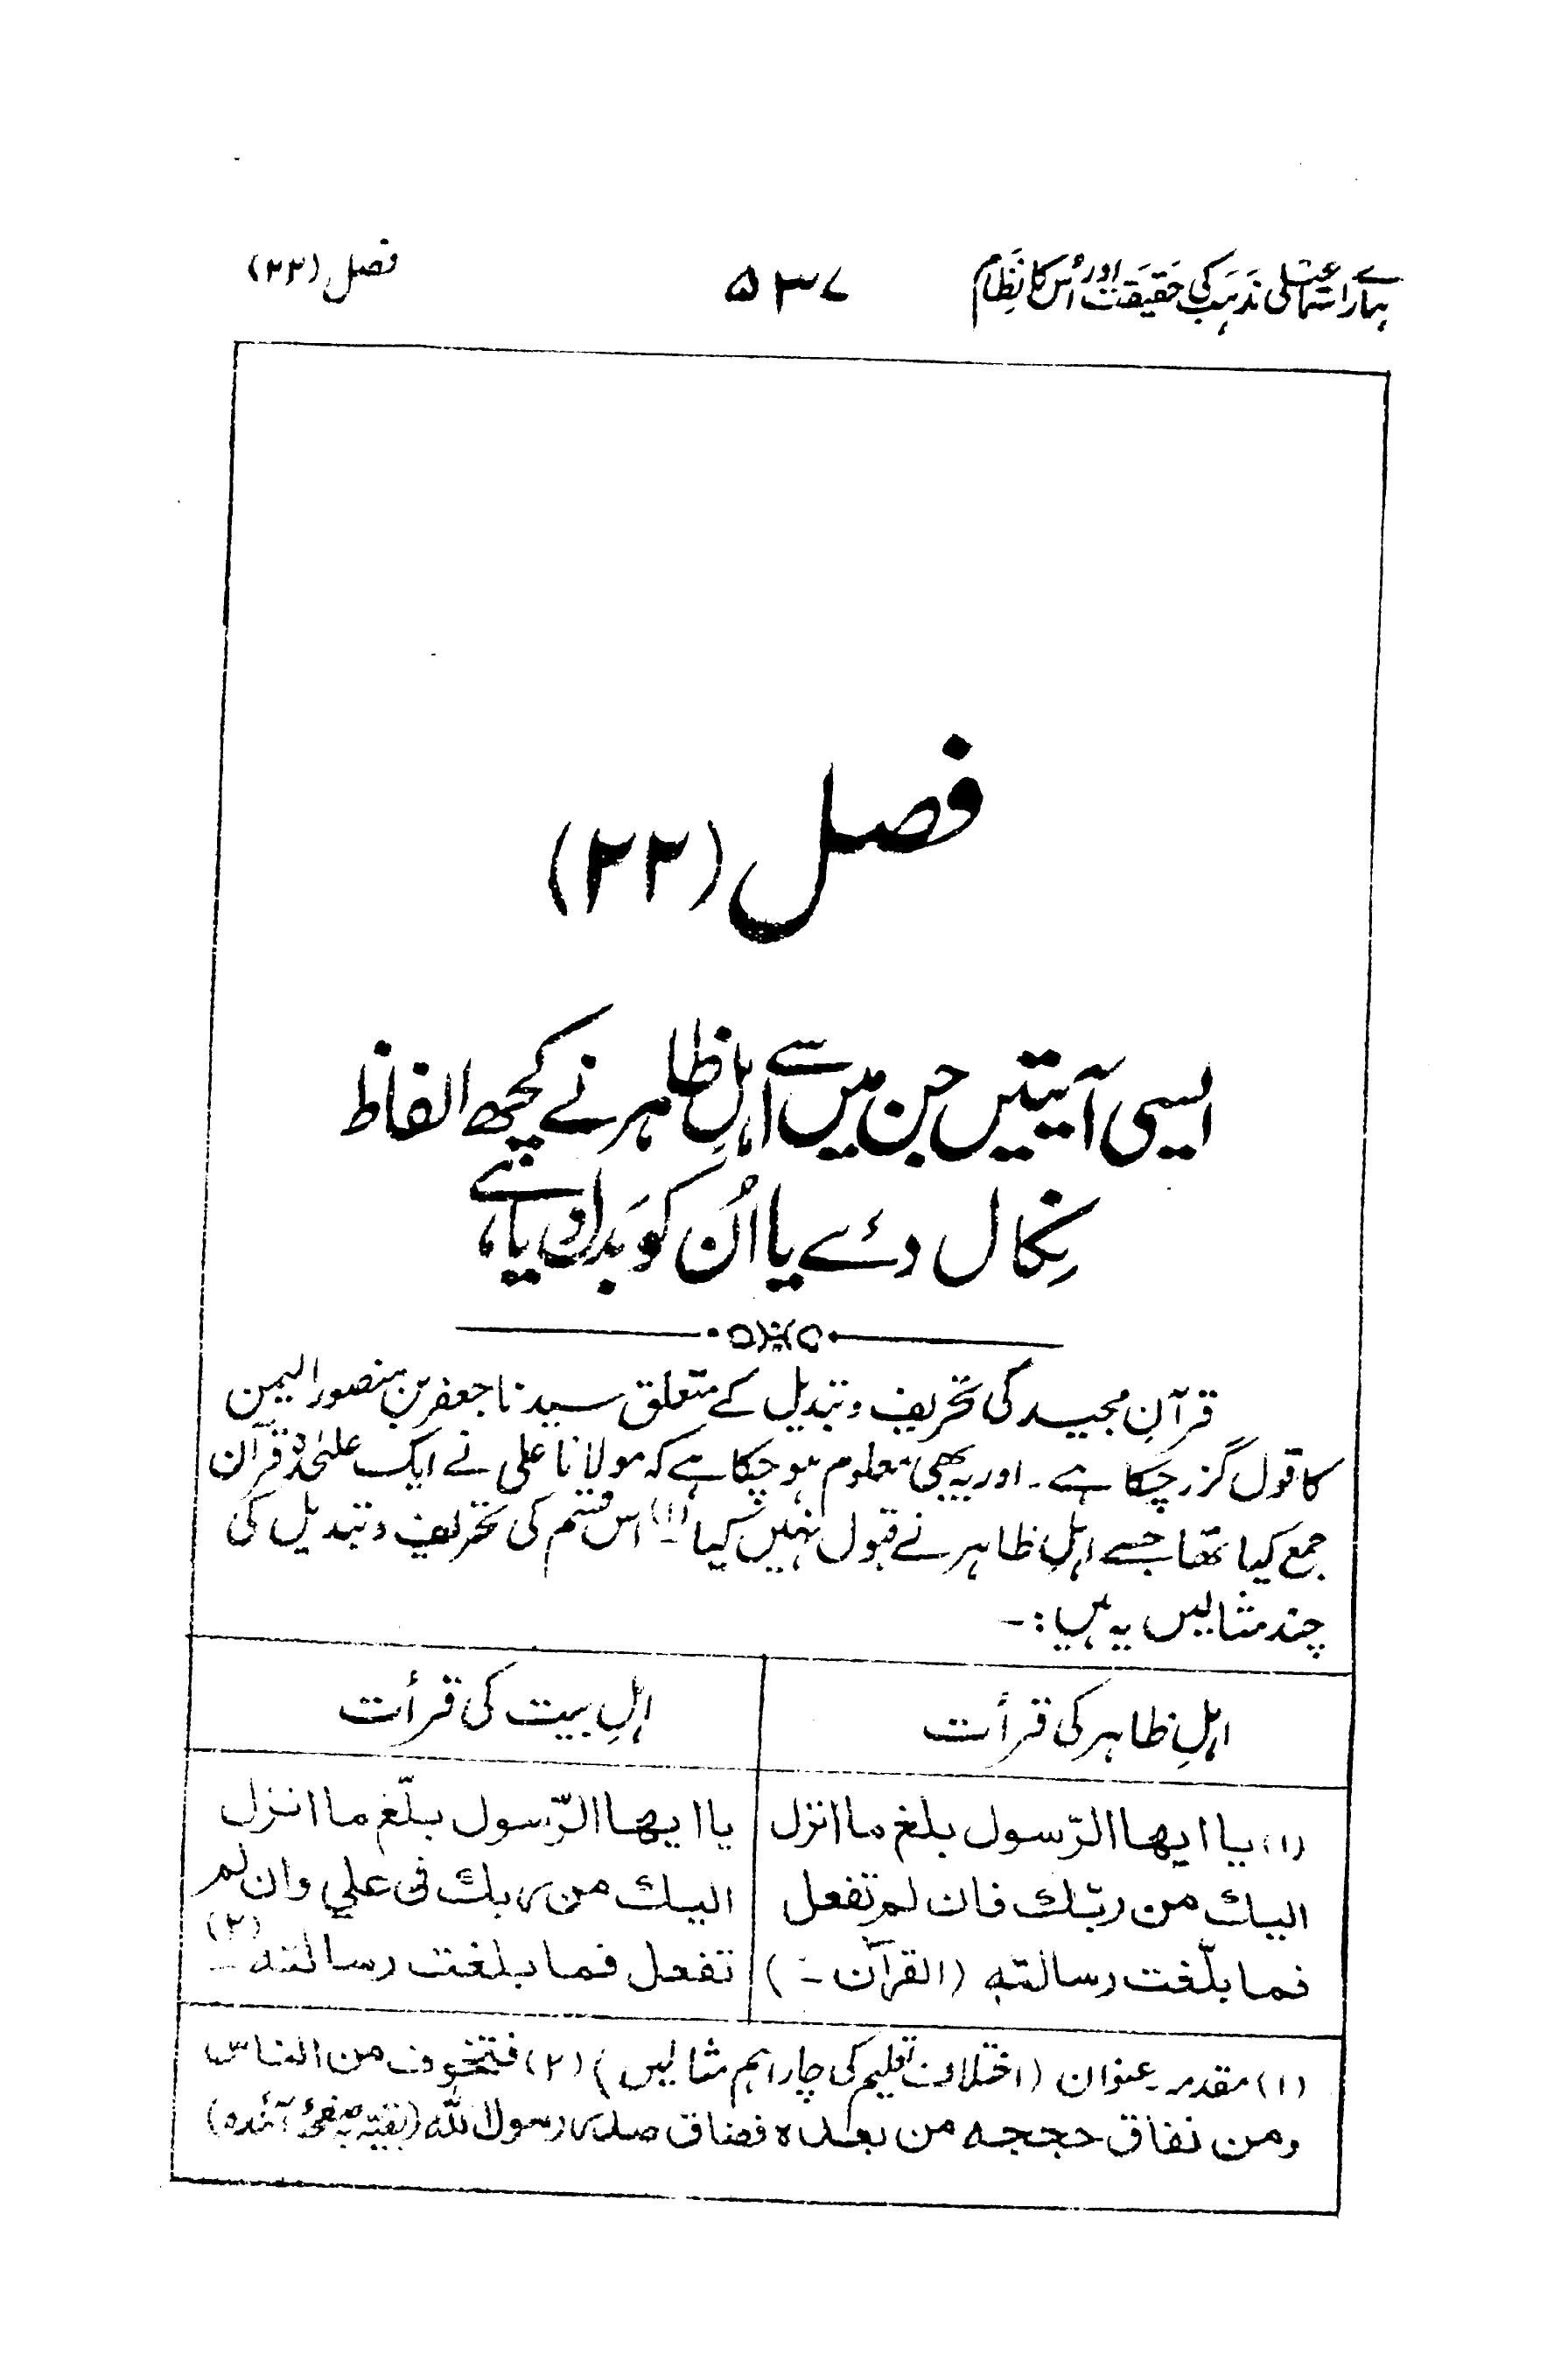 ہمارے اسماعیلی مذہب کی حقیقت اور اُس کا نظام ۵۳۷ فصل (۲۳)
فصل (۲۲)
ایسی آیتیں جن میں سے اہلِ ظاہر نے کچھ الفاظ
نکال دئے یا اُن کو بدل دیا ہے
قرآنِ مجید کی تحریف و تبدیل کے متعلق سیدنا جعفر بن منصور الیمن
کا قول گزر چکا ہے۔ اور یہ بھی معلوم ہو چکا ہے کہ مولانا علی نے ایک علیٰحدہ قرآن
جمع کیا تھا جسے اہلِ ظاہر نے قبول نہیں کیا (۱)۔ اس قسم کی تحریف و تبدیل کی
چند مثالیں یہ ہیں :-
اہلِ ظاہر کی قرأت
(۱) یا ایھا الرّسول بلغ ما انزل
الیك من ربّك فان لم تفعل
فما بلّغت رسالته (القرآن -)
اہلِ بیت کی قرأت
یا ایھا الرّسول بلّغ ما انزل
الیك من ربك فی علی وان لم
تفعل فما بلغت رسالته - (۲)
(۱) مقدمہ عنوان (اختلافِ تعلیم کی چار اہم مثالیں) (۲) فتخوف من الناس
ومن نفاق حججه من بعدہ فضاق صدر رسول اللہ (بقیّہ بہ صفحۂ آئندہ)